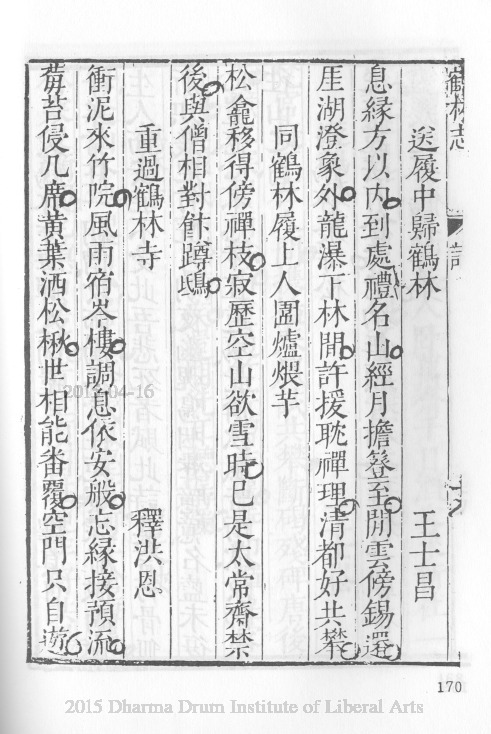 鶴林志
送履中歸鶴林 王士昌
息緣方以内到處禮名山經月擔簦至閒雲傍錫還
厓湖澄象外龍瀑下林間許援耽禪理清都好共攀
同鶴林履上人圍爐煨芋
松龕移得傍禪枝寂歷空山欲雪時已是太常齋禁
後與僧相對飰蹲鴟
重過鶴林寺 釋洪恩
衝泥來竹院風雨宿岑樓調息依安般忘緣接預流
莓苔侵几席黄葉洒松楸世相能畨覆空門只自遊
170
2012-04-16
2015 Dharma Drum Institute of Liberal Arts